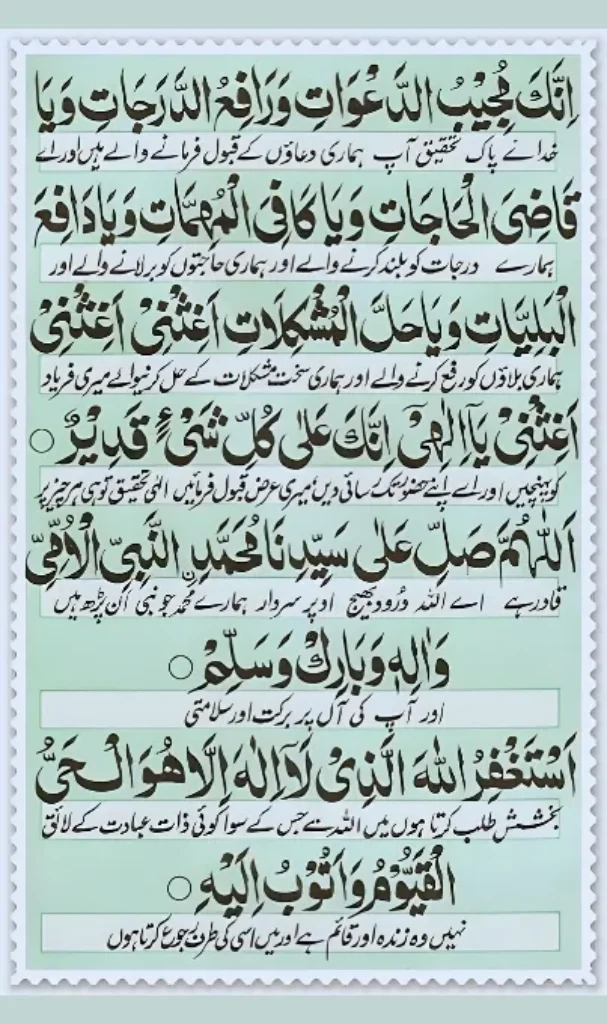 اِنَّكَ مُجِيْبُ الدَّعْوَاتِ وَرَافِعُ الدَّرَجَاتِ وَيَا
خدائے پاک تحقیق آپ ہماری دعاؤں کے قبول فرمانے والے ہیں اور اے
قَاضِیَ الْحَاجَاتِ وَيَا كَافِیَ الْمُهِمَّاتِ وَيَا دَافِعَ
ہمارے درجات کو بلند کرنے والے اور ہماری حاجتوں کو برلانے والے اور
الْبَلِيَّاتِ وَيَا حَلَّ الْمُشْكِلَاتِ اَغِثْنِیْ اَغِثْنِیْ
ہماری بلاؤں کو رفع کرنے والے اور ہماری سخت مشکلات کے حل کرنیوالے میری فریاد
اَغِثْنِیْ يَآ اِلٰهِیْ اِنَّكَ عَلٰی كُلِّ شَیْءٍ قَدِيْرٌ ○
کو پہنچیں اور اے اپنے حضور تک رسائی دیں میری عرض قبول فرمائیں الٰہی تحقیق تو ہی ہر چیز پر
اَللّٰهُمَّ صَلِّ عَلٰی سَيِّدِنَا مُحَمَّدِنِ النَّبِیِّ الْاُمِّیِّ
قادر ہے اے اللہ درُود بھیج اوپر سردار ہمارے محمدؐ جو نبی اَن پڑھ ہیں
وَاٰلِهٖ وَبَارِكْ وَسَلِّمْ ○
اور آپ کی آل پر برکت اور سلامتی
اَسْتَغْفِرُ اللّٰهَ الَّذِیْ لَآ اِلٰهَ اِلَّا هُوَ الْحَیُّ
بخشش طلب کرتا ہوں میں اللہ سے جس کے سوا کوئی ذات عبادت کے لائق
الْقَيُّوْمُ وَاَتُوْبُ اِلَيْهِ ○
نہیں وہ زندہ اور قائم ہے اور میں اسی کی طرف رجوع کرتا ہوں